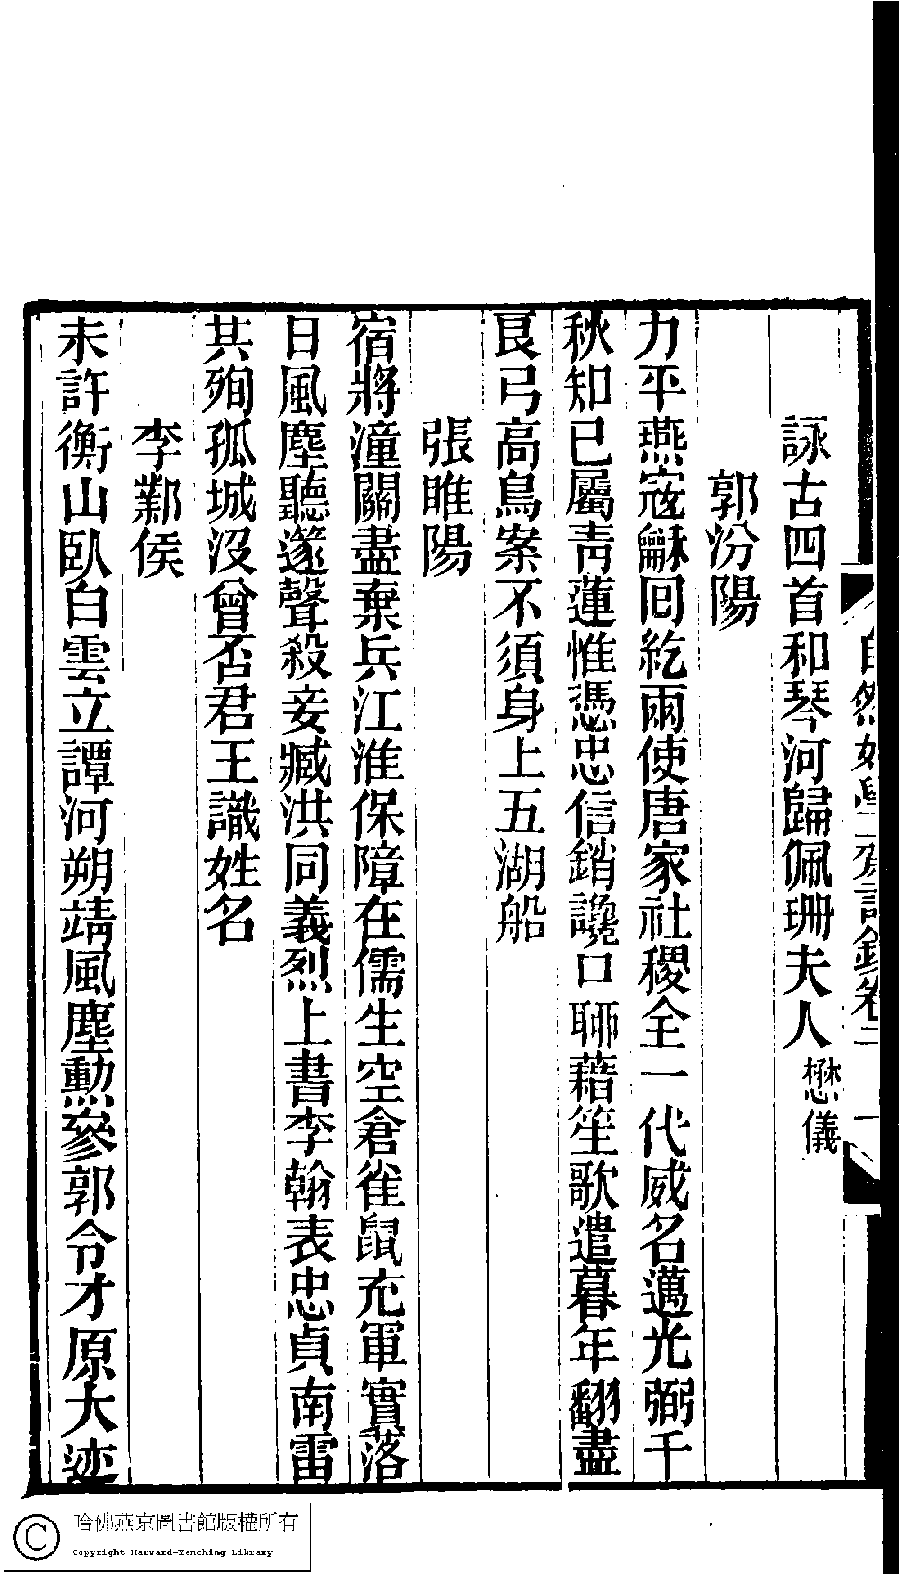 詠古四首和琴河歸佩珊夫人懋儀
郭汾陽
力平燕寇龢回紇兩使唐家社稷全一代威名邁光弼千
秋知己屬青蓮惟憑忠信銷讒口聊藉笙歌遣暮年翻盡
良弓高鳥案不須身上五湖船
張睢陽
宿將潼關盡棄兵江淮保障在儒生空倉雀鼠充軍實落
日風塵聽篴聲殺妾臧洪同義烈上書李翰表忠貞南雷
共殉孤城沒曾否君王識姓名
李鄴侯
未許衡山臥白雲立譚河朔靖風塵勲參郭令才原大迹
哈佛燕京圖書館版權所有
Copyright Harvard-Yenching Library